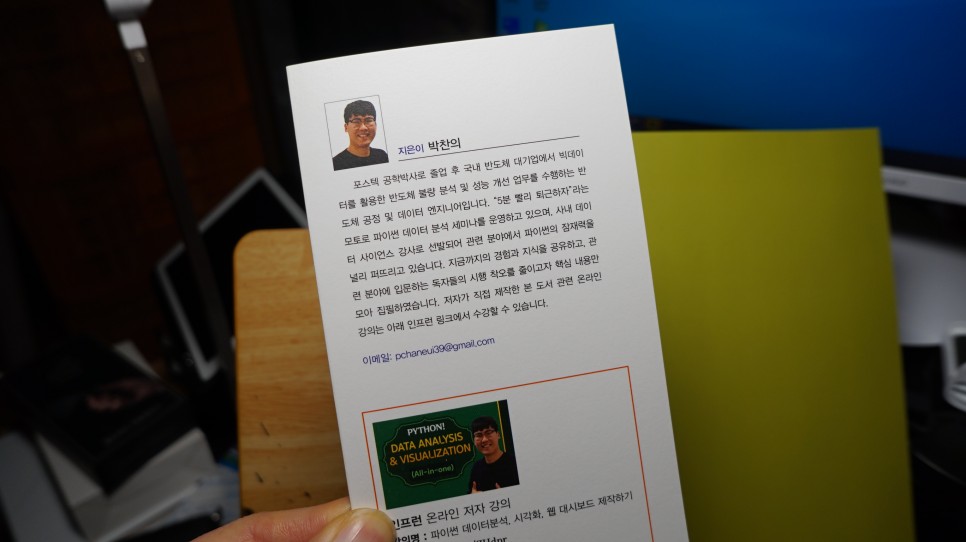 지은이 박찬의
포스텍 공학박사로 졸업 후 국내 반도체 대기업에서 빅데이
터를 활용한 반도체 불량 분석 및 성능 개선 업무를 수행하는 반
도체 공정 및 데이터 엔지니어입니다. "5분 빨리 퇴근하자"라는
모토로 파이썬 데이터 분석 세미나를 운영하고 있으며, 사내 데이
터 사이언스 강사로 선발되어 관련 분야에서 파이썬의 잠재력을
널리 퍼뜨리고 있습니다. 지금까지의 경험과 지식을 공유하고, 관
련 분야에 입문하는 독자들의 시행 착오를 줄이고자 핵심 내용만
모아 집필하였습니다. 저자가 직접 제작한 본 도서 관련 온라인
강의는 아래 인프런 링크에서 수강할 수 있습니다.
이메일: pchaneui39@gmail.com
PYTHON!
DATA ANALYSIS
& VISUALIZATION
(All-in-one)
인프런 온라인 저자 강의
강의명 : 파이썬 데이터분석, 시각화, 웹 대시보드 제작하기